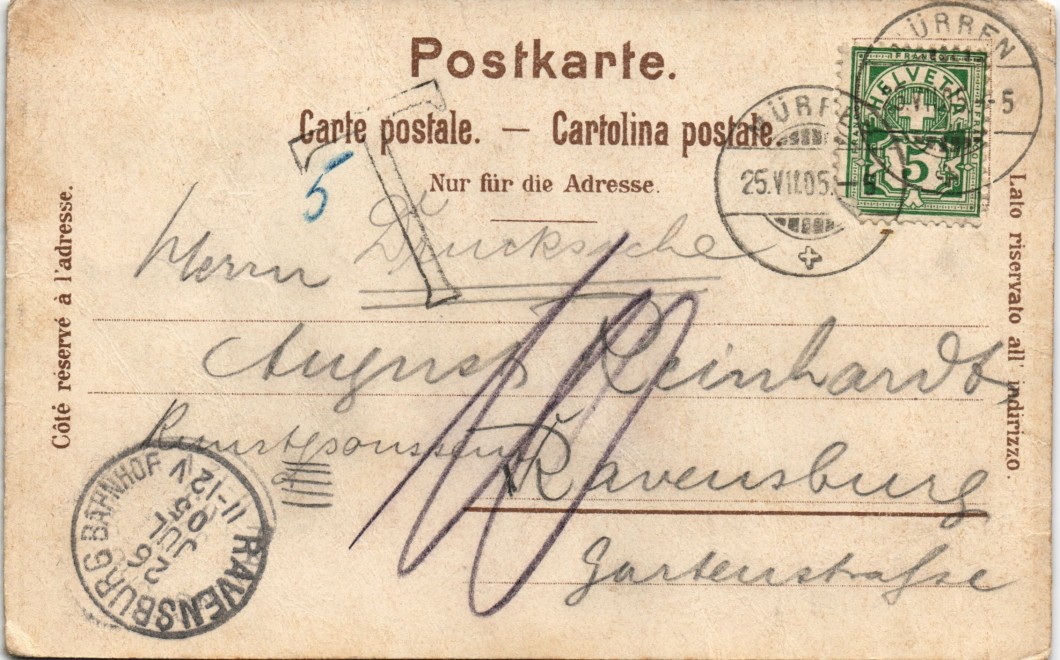 Postkarte.
Carte postale. — Cartolina postale.
Nur für die Adresse.
Côté réservé à l'adresse.
Lato riservato all' indirizzo.
MÜRREN
FRANCO
HELVETIA
5
MÜRREN
25.VII.05.
T
5
Drucksache
Herrn
August Reinhardt,
Ravensburg
Gartenstraße
10
RAVENSBURG BAHNHOF
26
JUL
05
11-12 V